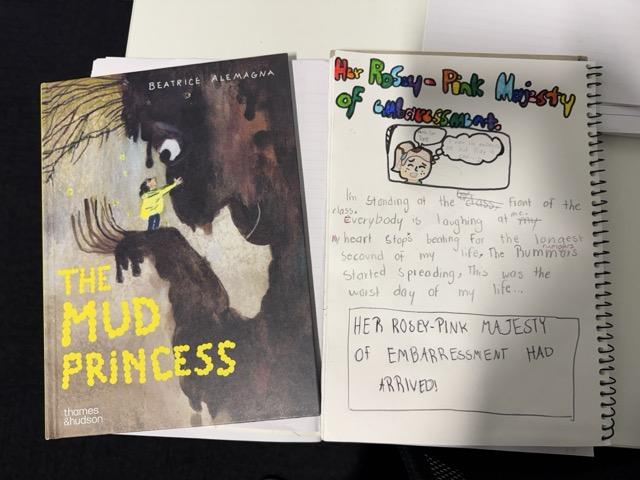 BEATRICE ALEMAGNA
THE
MUD
PRINCESS
thames
&hudson
Her Rosey-Pink Majesty
of embaressment.
Im standing at the class, front of the
class.
Everybody is laughing at me.
My heart stops beating for the longest
secound of my life, The Rummors
rumors
started spreading, This was the
worst day of my life...
HER ROSEY-PINK MAJESTY
OF EMBARRESSMENT HAD
ARRIVED!